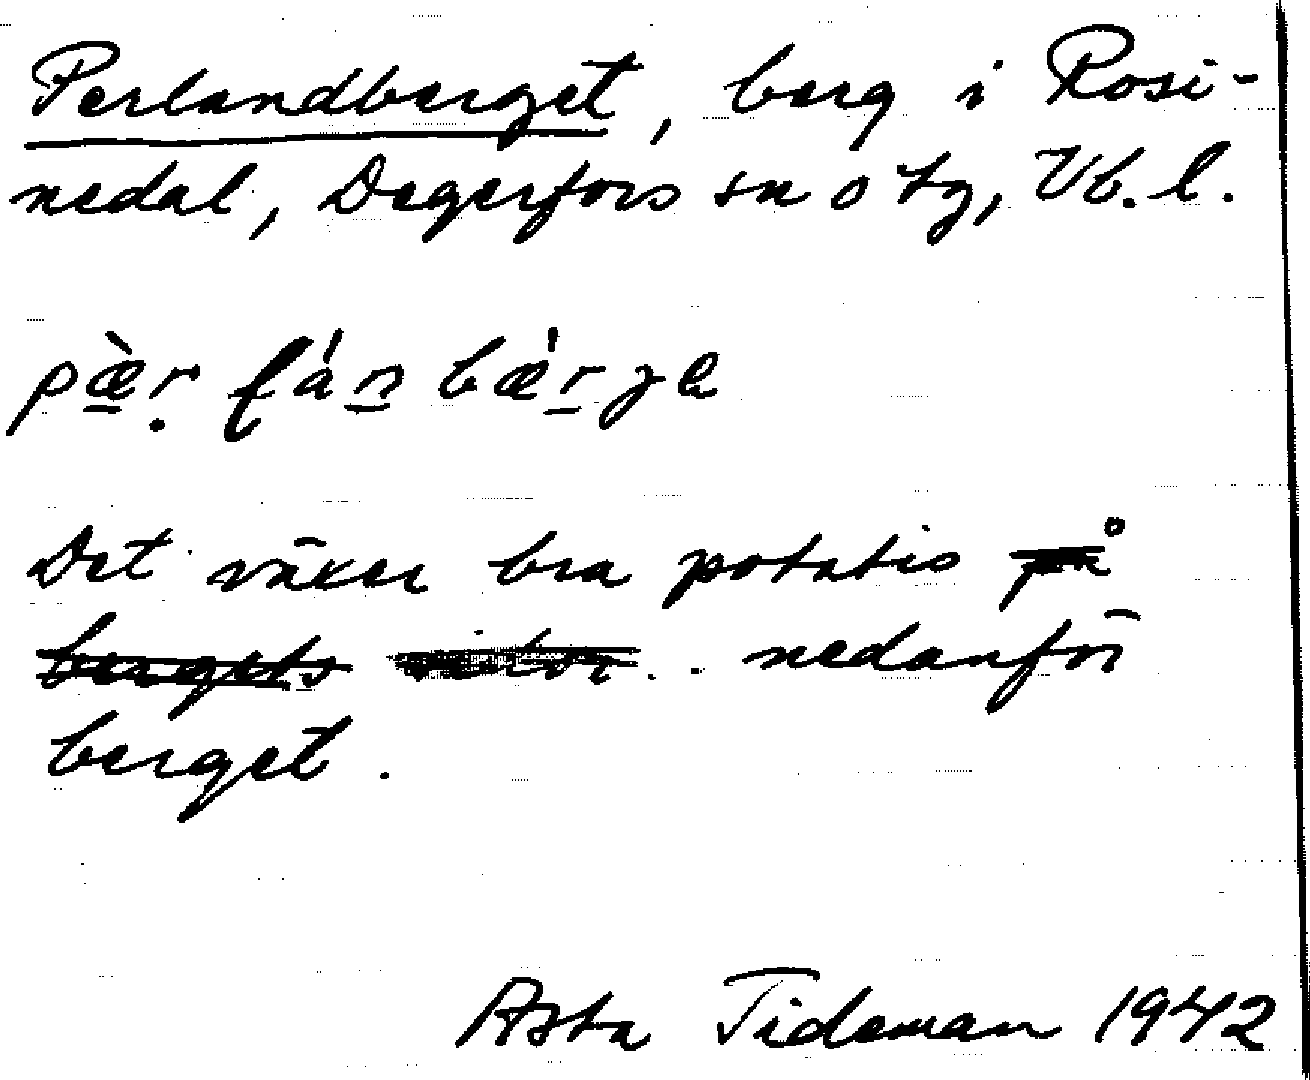 Perlandberget, berg i Rosi-
nedal, Degerfors sn o tg, Vb. l.
pæ̀r lán bǽrge
Det växer bra potatis på
bergets nedanför
berget.
Asta Tideman 1942